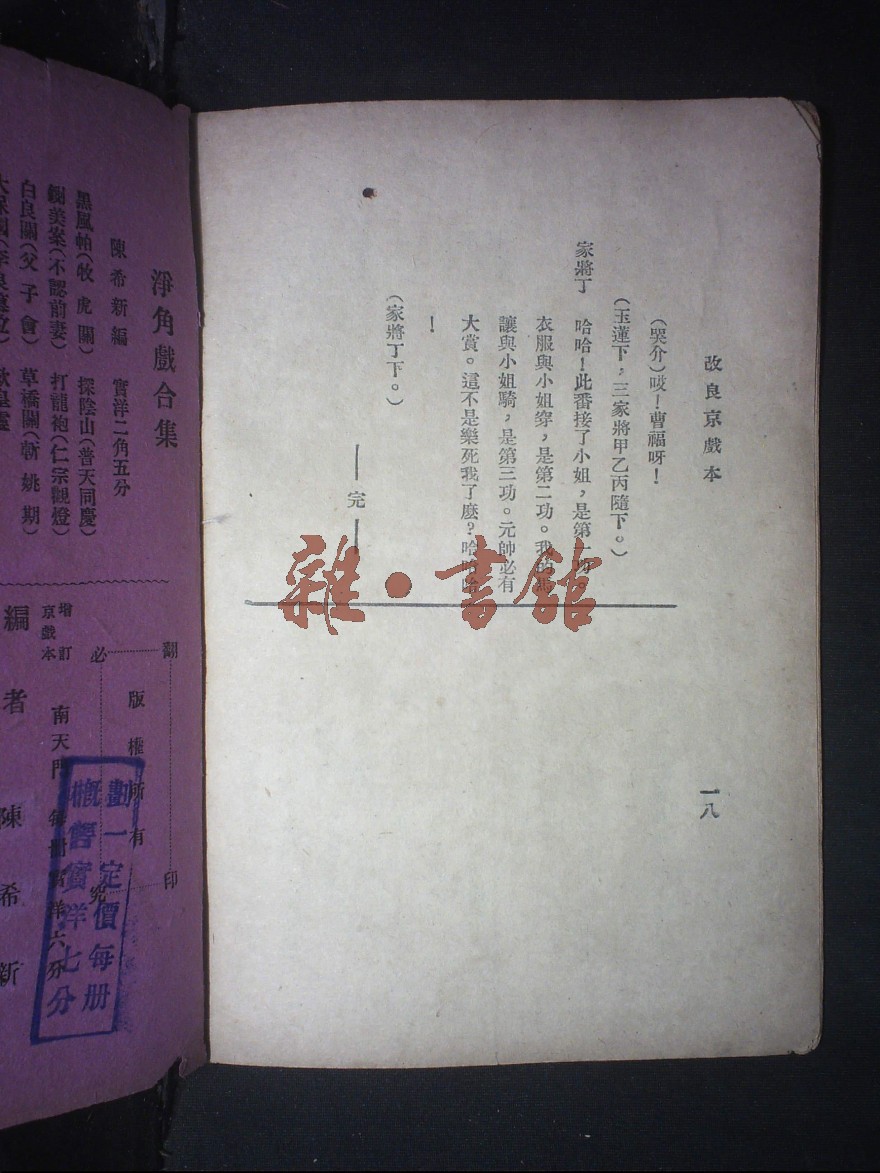 改良京戲本
一八
(哭介)唆!曹福呀!
(玉蓮下,三家將甲乙丙隨下。)
家將丁 哈哈!此番接了小姐,是第一功。
衣服與小姐穿,是第二功。我的馬
讓與小姐騎,是第三功。元帥必有
大賞。這不是樂死我了麽?哈哈哈
!
(家將丁下。)
——完——
雜·書館
淨角戲合集
陳希新編 實洋二角五分
黑風帕(牧虎關) 探陰山(普天同慶)
鍘美案(不認前妻) 打龍袍(仁宗觀燈)
白良關(父子會) 草橋關(斬姚期)
翻印必究
版權所有
增訂京戲本 南天門 每冊實洋六分
編者 陳希新
劃一定價每册
概售實洋七分